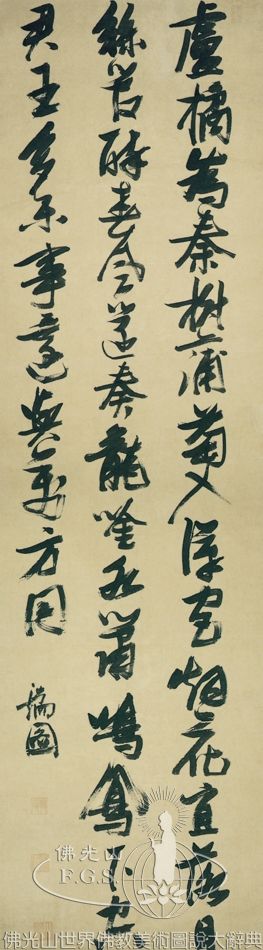 盧橘為秦樹蒲萄入漢宮烟花宜落日
絲管醉春風笛奏龍吟水簫鳴鳳下空
君王多樂事還與萬方同
瑞圖
佛光山
F.G.S.
佛光山世界佛教美術圖說大辭典